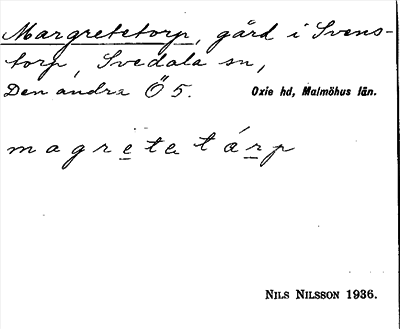 Margretetorp, gård i Svens-
torp, Svedala sn,
Den andra Ö 5. Oxie hd, Malmöhus län.
magretetárp
NILS NILSSON 1936.